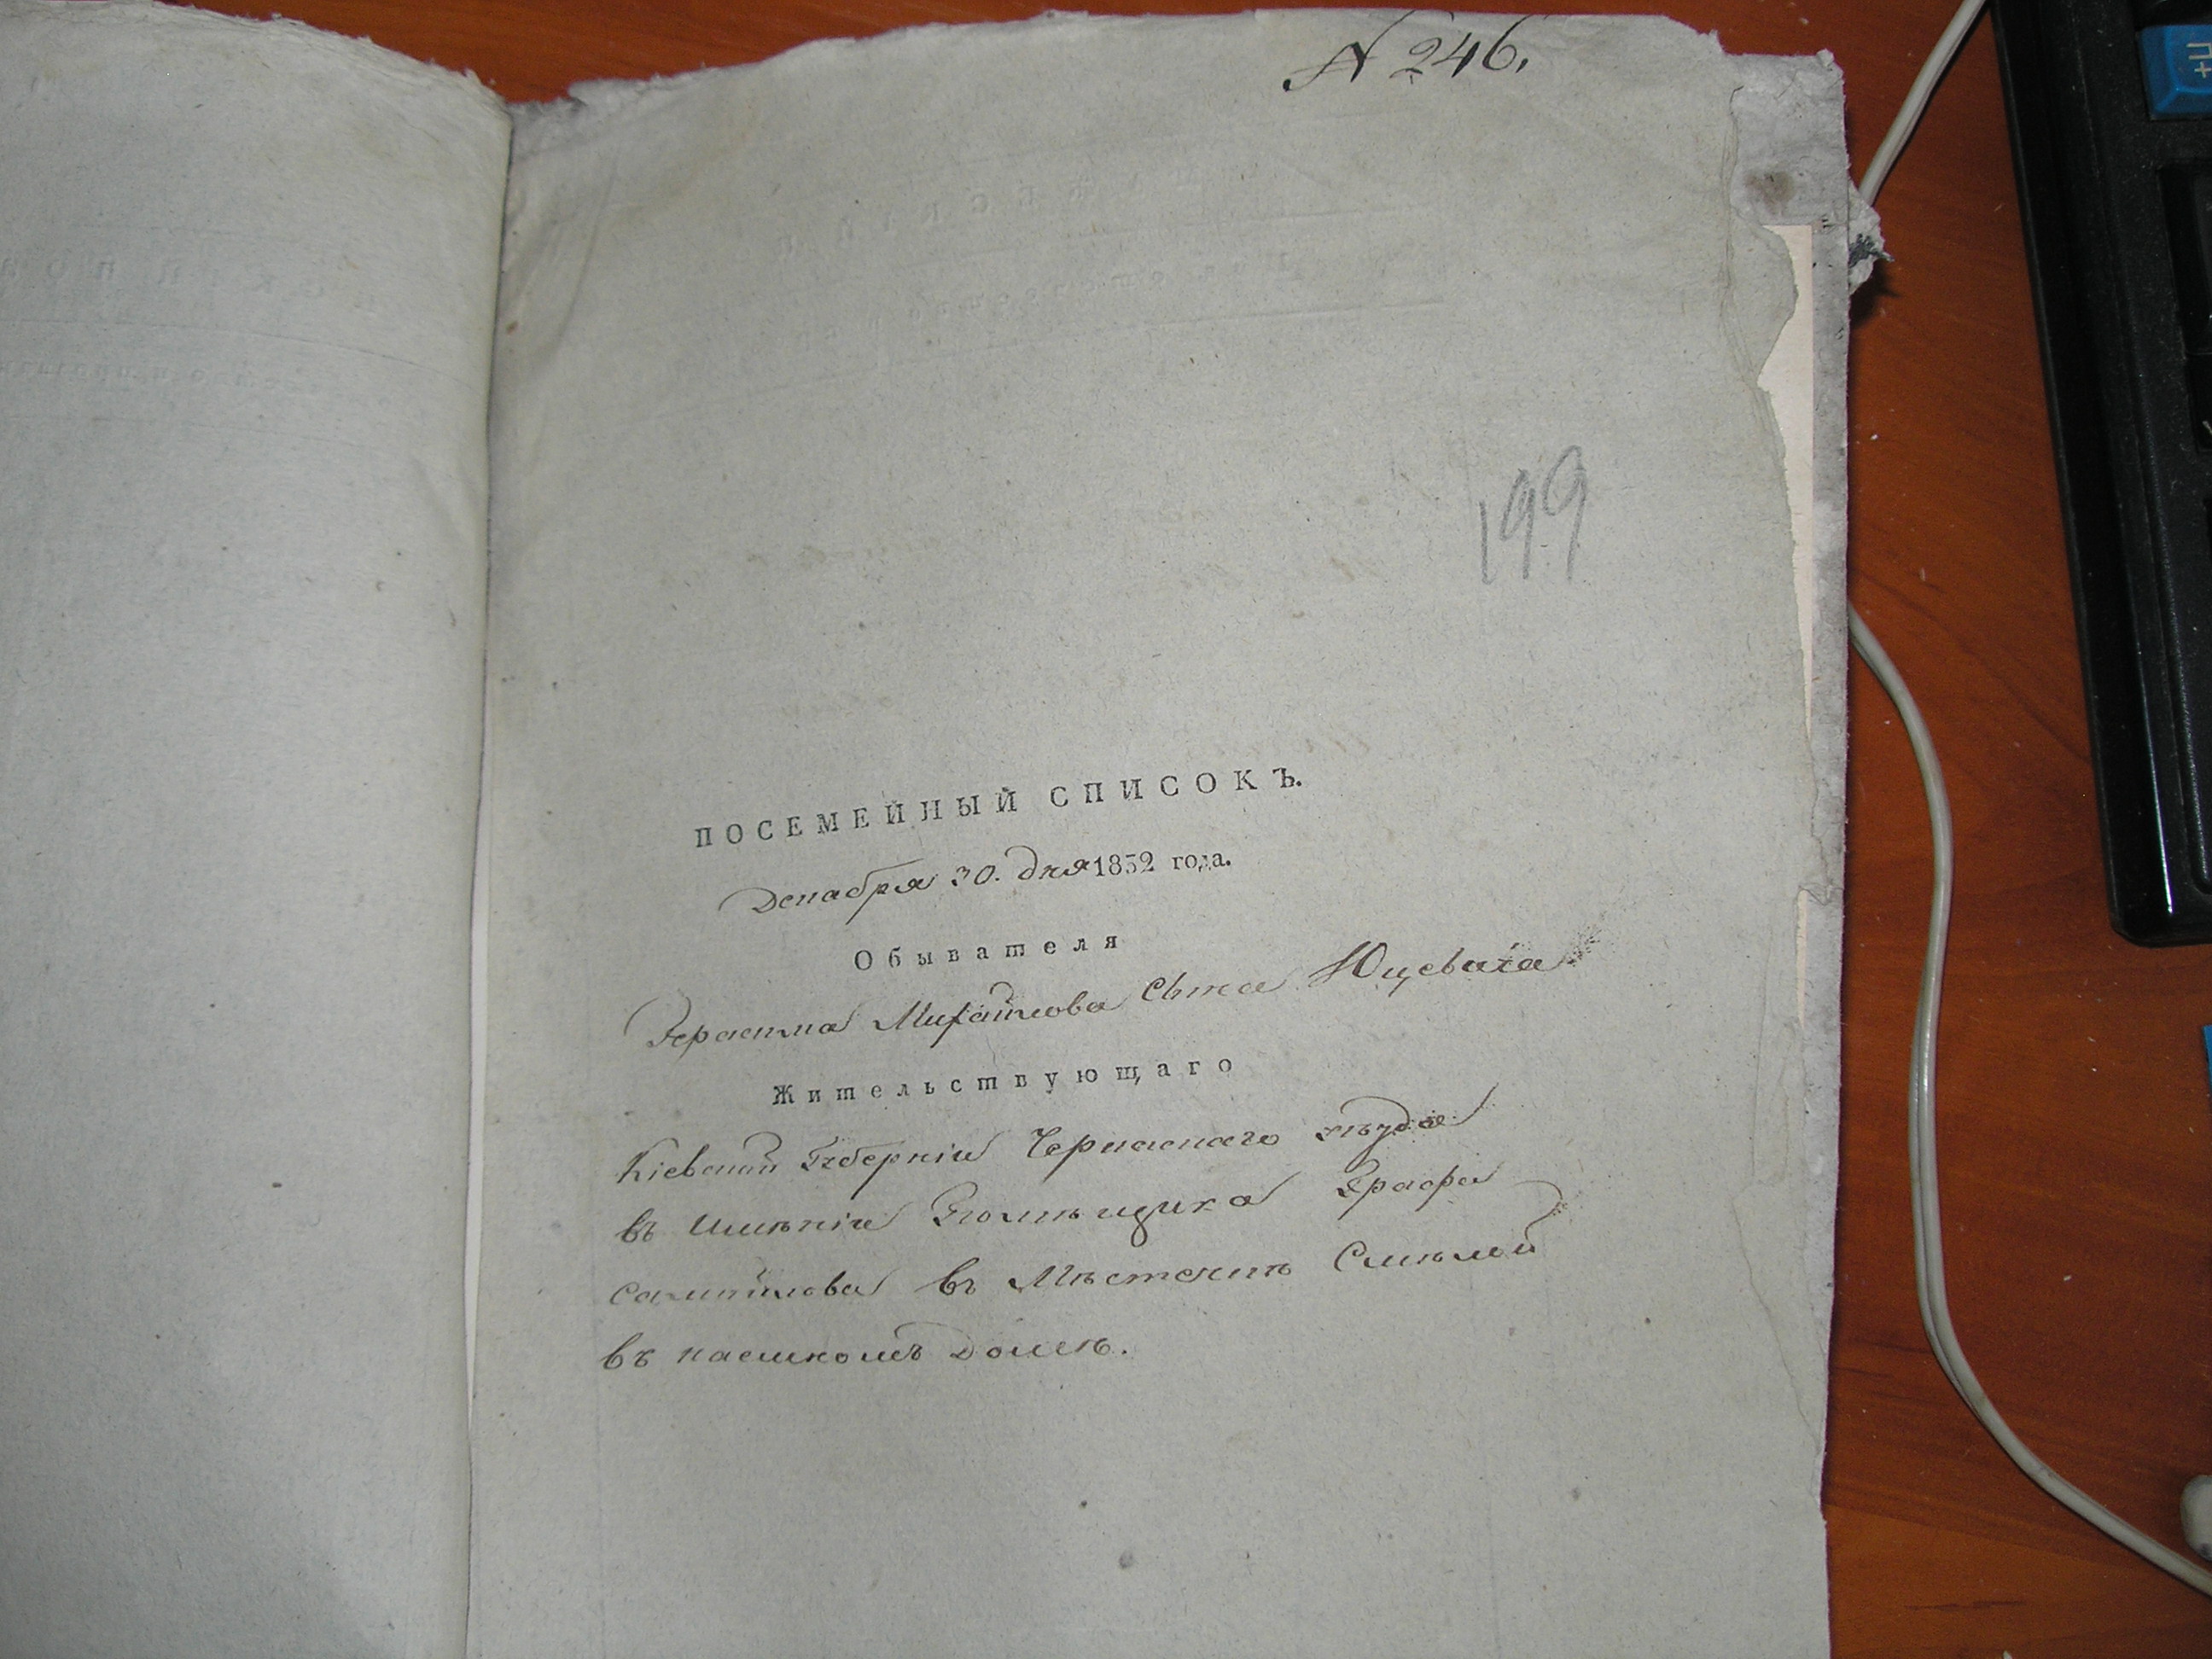 N 246.
199
ПОСЕМЕЙНЫЙ СПИСОКЪ.
Декабря 30. дня 1832 года.
Обывателя
Герасима Михайлова Сына Юцевича
Жительствующаго
Кіевской Губерніи Черкаскаго уѣзда
въ имѣніи Помѣщика Графа
Самойлова въ Мѣстечкѣ Смѣлой
въ наемномъ домѣ.